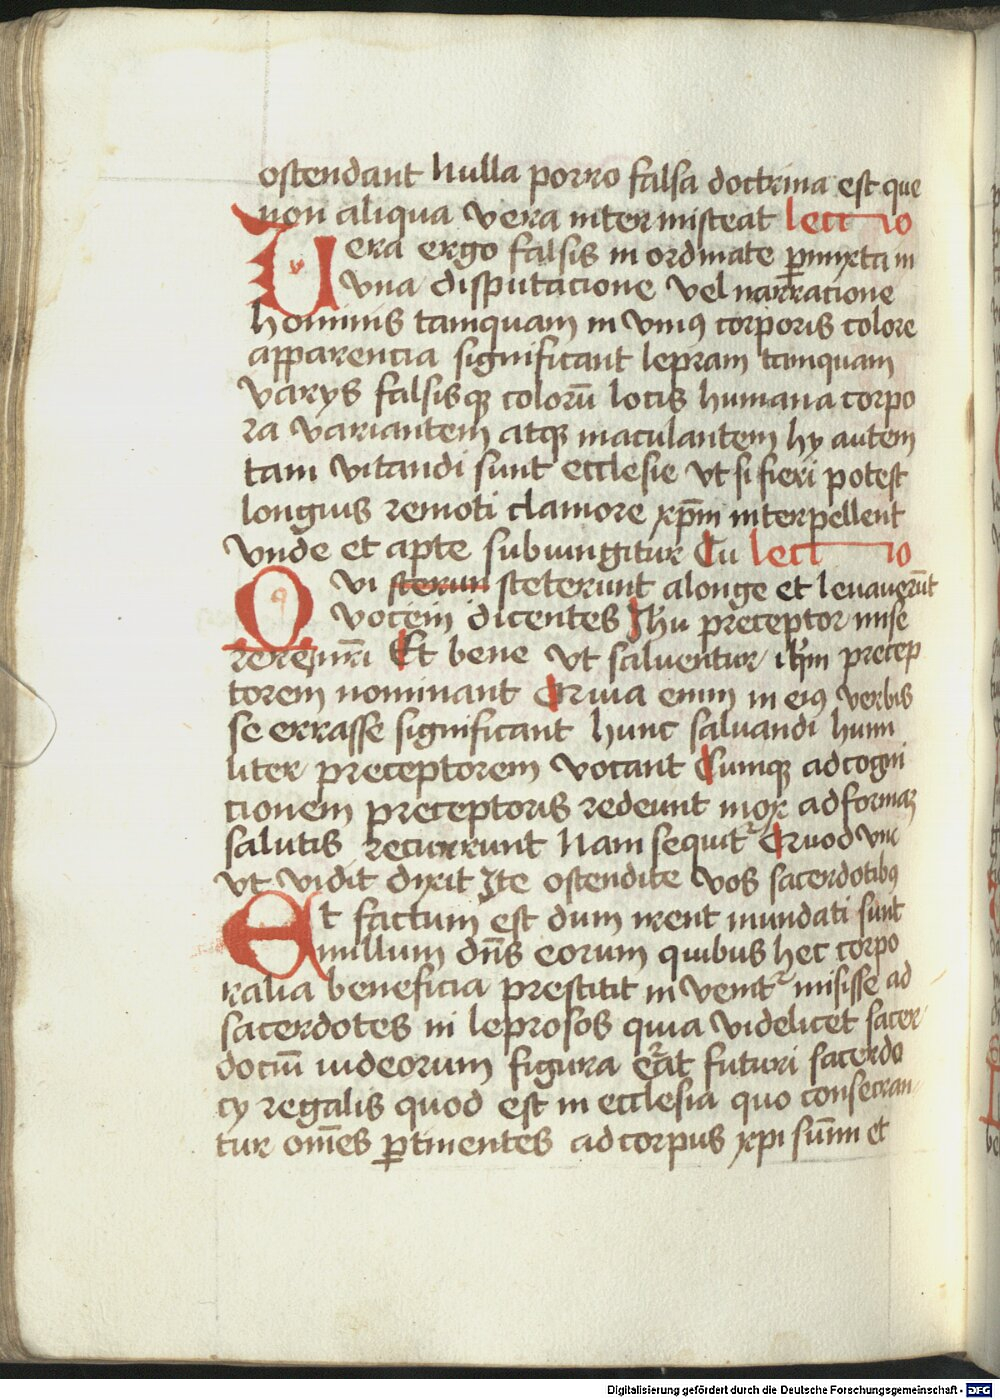 ostendant Nulla porro falsa doctrina est que
non aliqua vera intermisteat lectio
Uera ergo falsis in ordinate p̲mixta in
vna disputacione vel narracione
hominis tamquam in vniꝰ corporis colore
apparencia significant lepram tamquam
varys falsisqꝫ colorū locis humana corpo
ra variantem atqꝫ maculantem hy autem
tam vitandi sunt ecclesie vt si fieri potest
longius remoti clamore xp̄m interpellent
vnde et apte subiungitur Cu lectio
Qvi sterun steterunt alonge et leuauerūt
vocem dicentes Jhu preceptor mise
rere nr̄i Et bene vt saluentur ihm precep
torem nominant Qvia enim in eiꝰ verbis
se errasse significant hunc saluandi humi
liter preceptorem vocant Cumqꝫ ad cogni
cionem preceptoris redeunt mox ad formaꝫ
salutis recurrunt Nam sequitr Qvod vnc
vt vidit dixit Jte ostendite vos sacerdotibꝰ
Et factum est dum irent mundati sunt
nullum dn̄s eorum quibus hec corpo
ralia beneficia prestitit in venitr misisse ad
sacerdotes ni leprosos quia videlicet sacer
dociū iudeorum figura erat futuri sacerdo
cy regalis quod est in ecclesia quo consecran
tur om̄es ꝑtinentes ad corpus xpi sūmi et
Digitalisierung gefördert durch die Deutsche Forschungsgemeinschaft - DFG